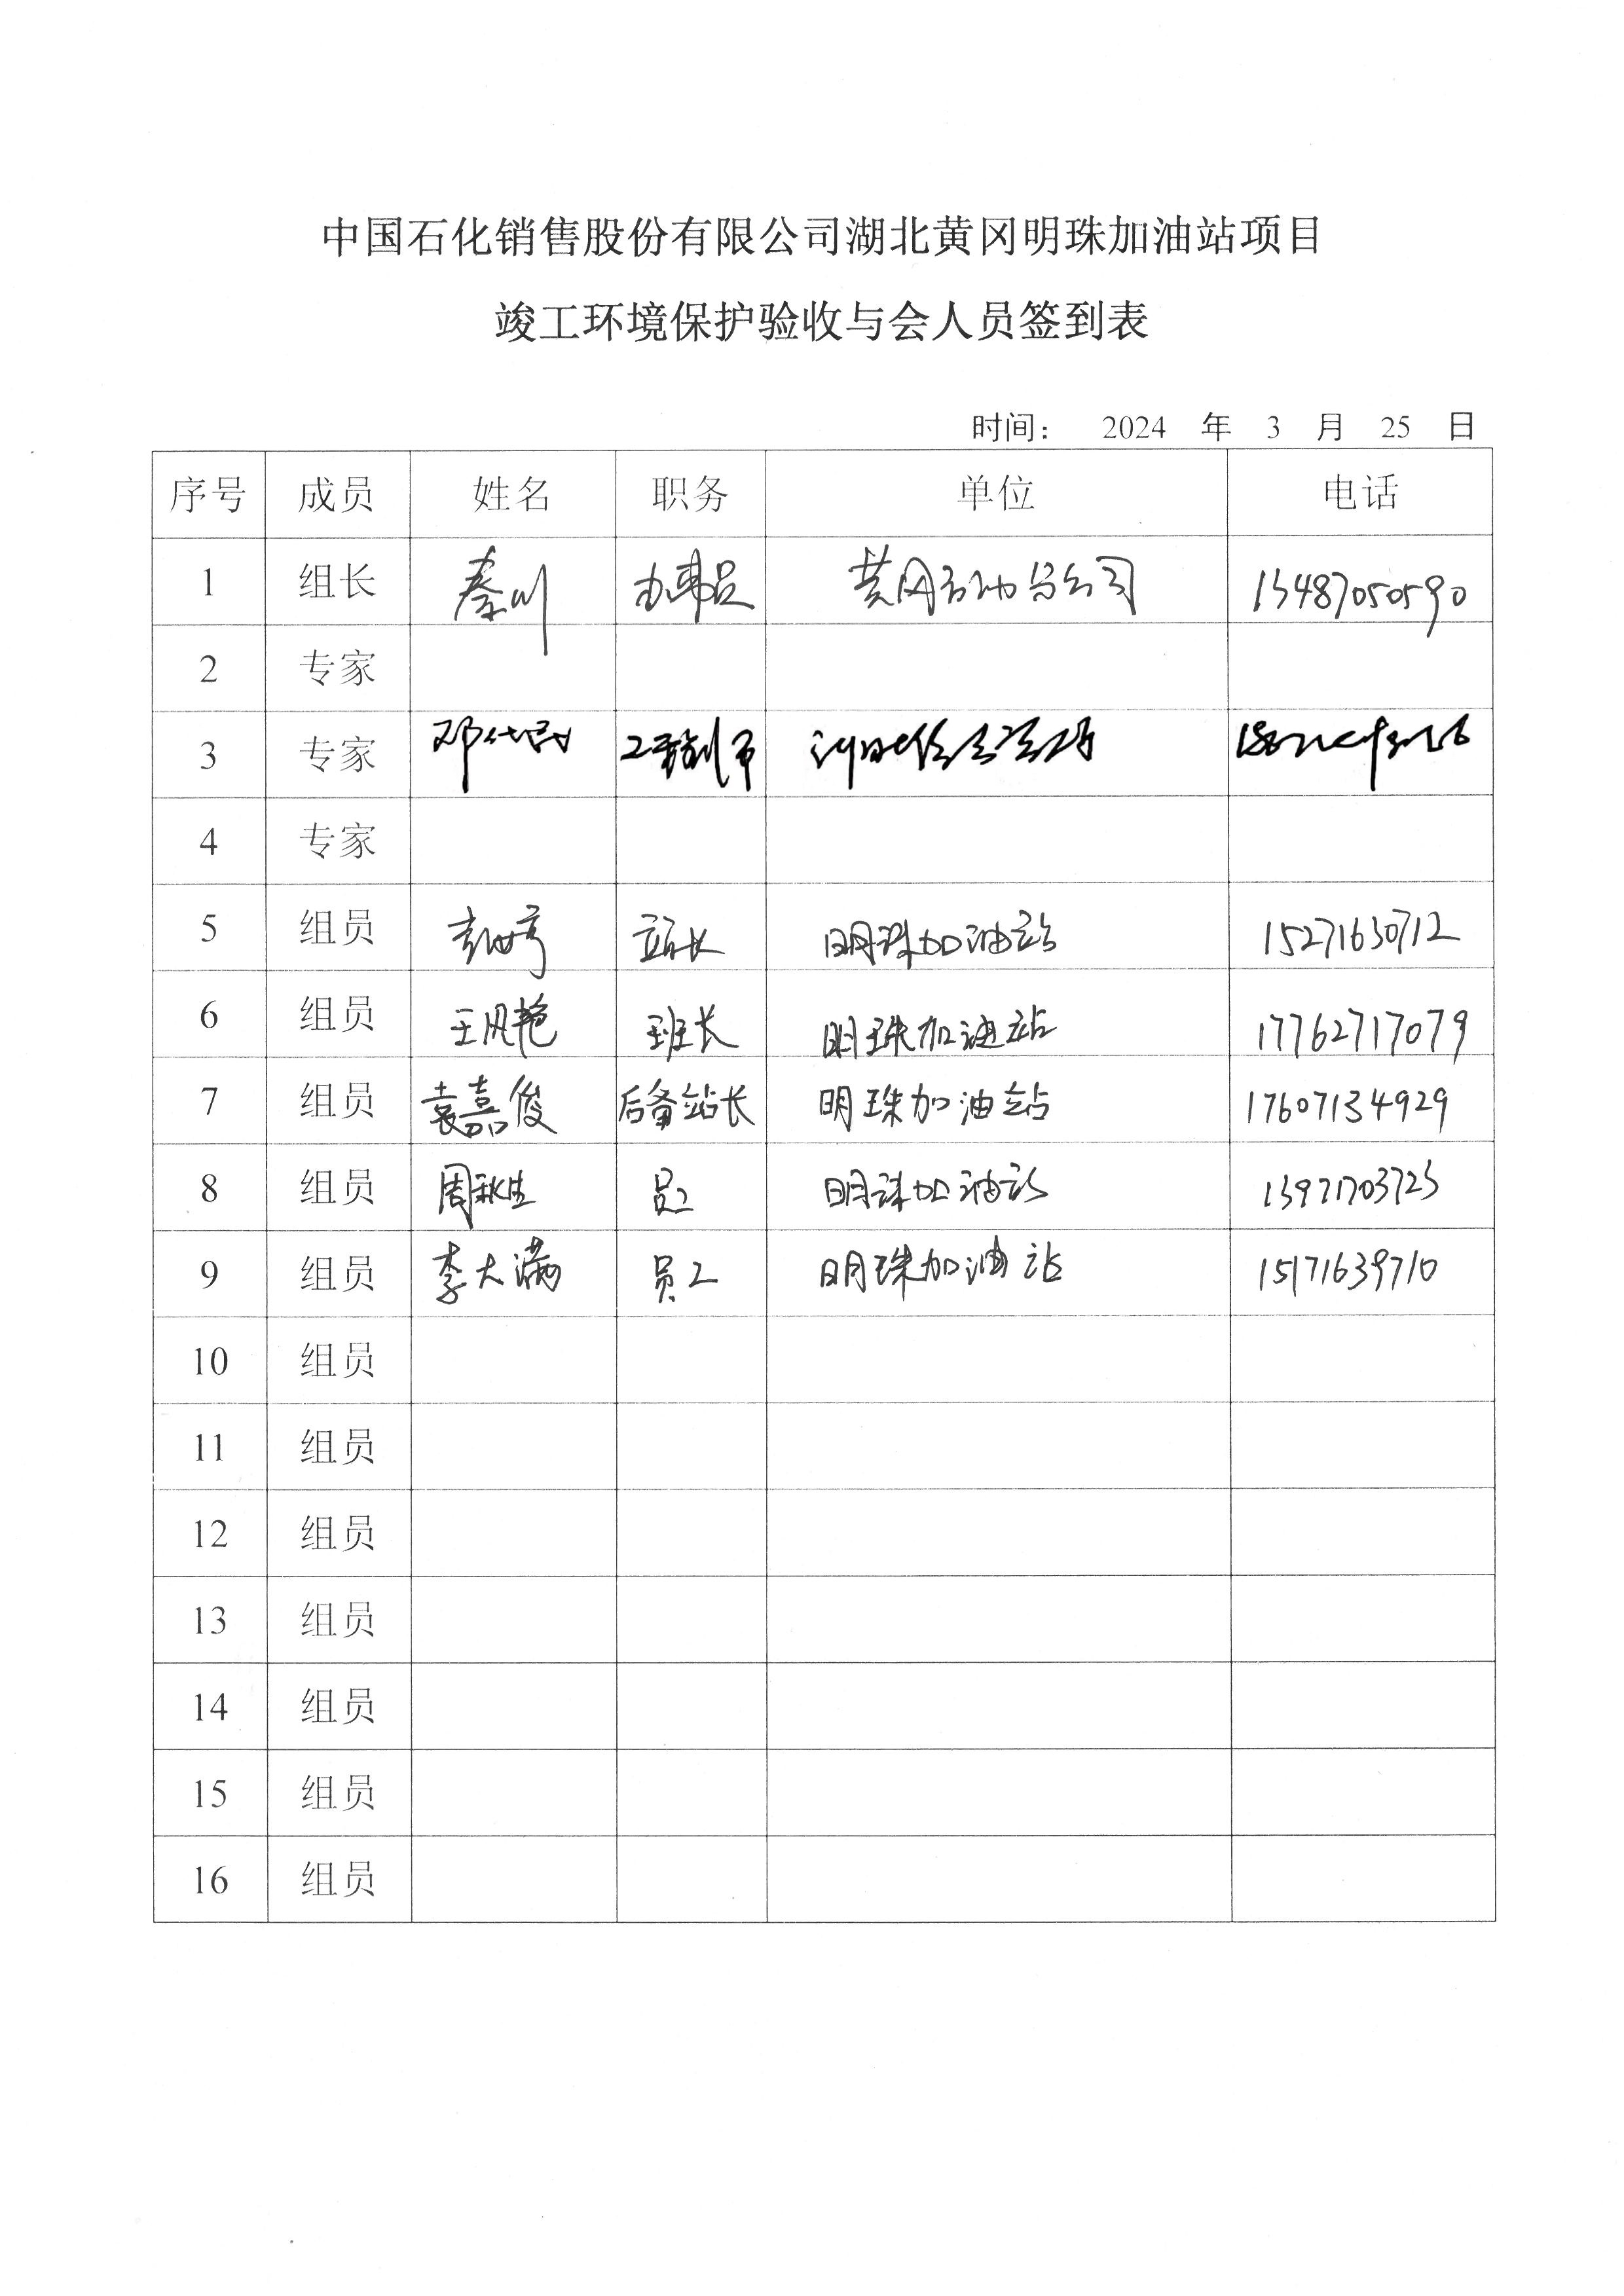 中国石化销售股份有限公司湖北黄冈明珠加油站项目
竣工环境保护验收与会人员签到表
时间： 2024 年 3 月 25 日
序号 成员 姓名 职务 单位 电话
1 组长 秦川 办事员 黄冈石油分公司 13487050590
2 专家
3 专家 邓代武 工程师
4 专家
5 组员 站长 明珠加油站 15271630712
6 组员 王凤艳 班长 明珠加油站 17762717079
7 组员 袁嘉俊 后备站长 明珠加油站 17607134929
8 组员 周秋生 员工 明珠加油站 13971703723
9 组员 李大满 员工 明珠加油站 15171639710
10 组员
11 组员
12 组员
13 组员
14 组员
15 组员
16 组员